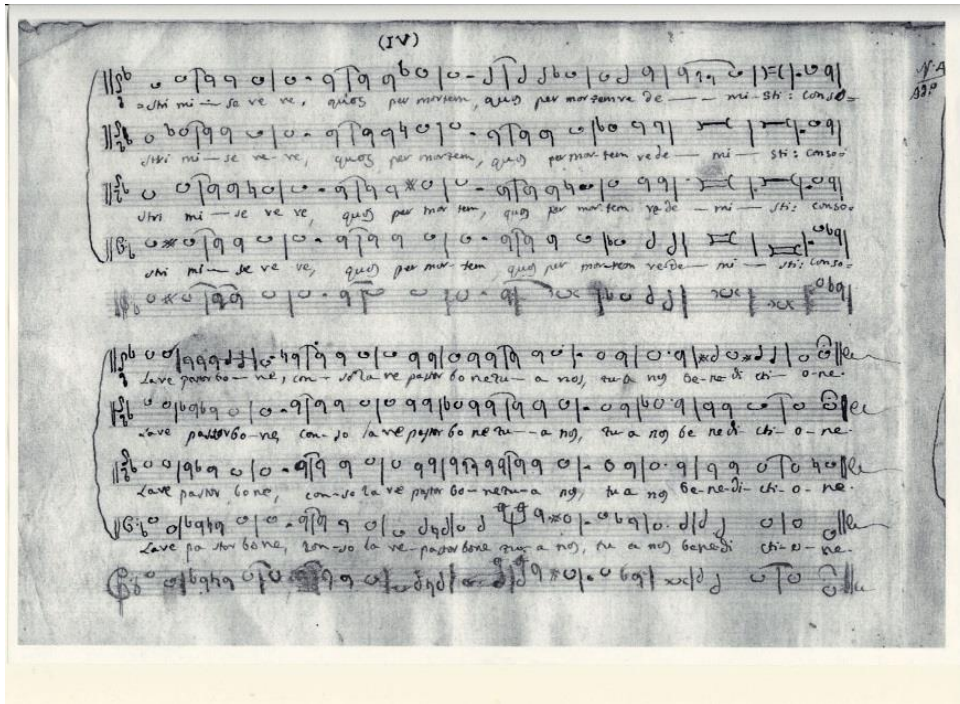 (IV)
N.A
stri mi — se re re, quos per mortem, quos per mortem re de — mi-sti: conso=
stri mi — se re-re, quos per mortem, quos per mor-tem rede — mi — sti: conso=
stri mi — se re re, quos per mor tem, quos per mor-tem re de — mi — sti: conso=
stri mi — se re re, quos per mor-tem, quos per mor-tem re de — mi — sti: conso=
lare pastor bo — ne, con — so la re pastor bo ne tu — a nos, tu a nos be-ne di cti — o-ne.
lare pastor bo-ne, con-so la re pastor bo ne tu — a nos, tu a nos be nedi-cti-o-ne.
lare pastor bone, con-so la re pastor bo-ne tu-a nos, tu a nos be-ne-di-cti-o-ne.
lare pa stor bone, con-so la re-pastor bone tu-a nos, tu a nos benedi cti-o-ne.